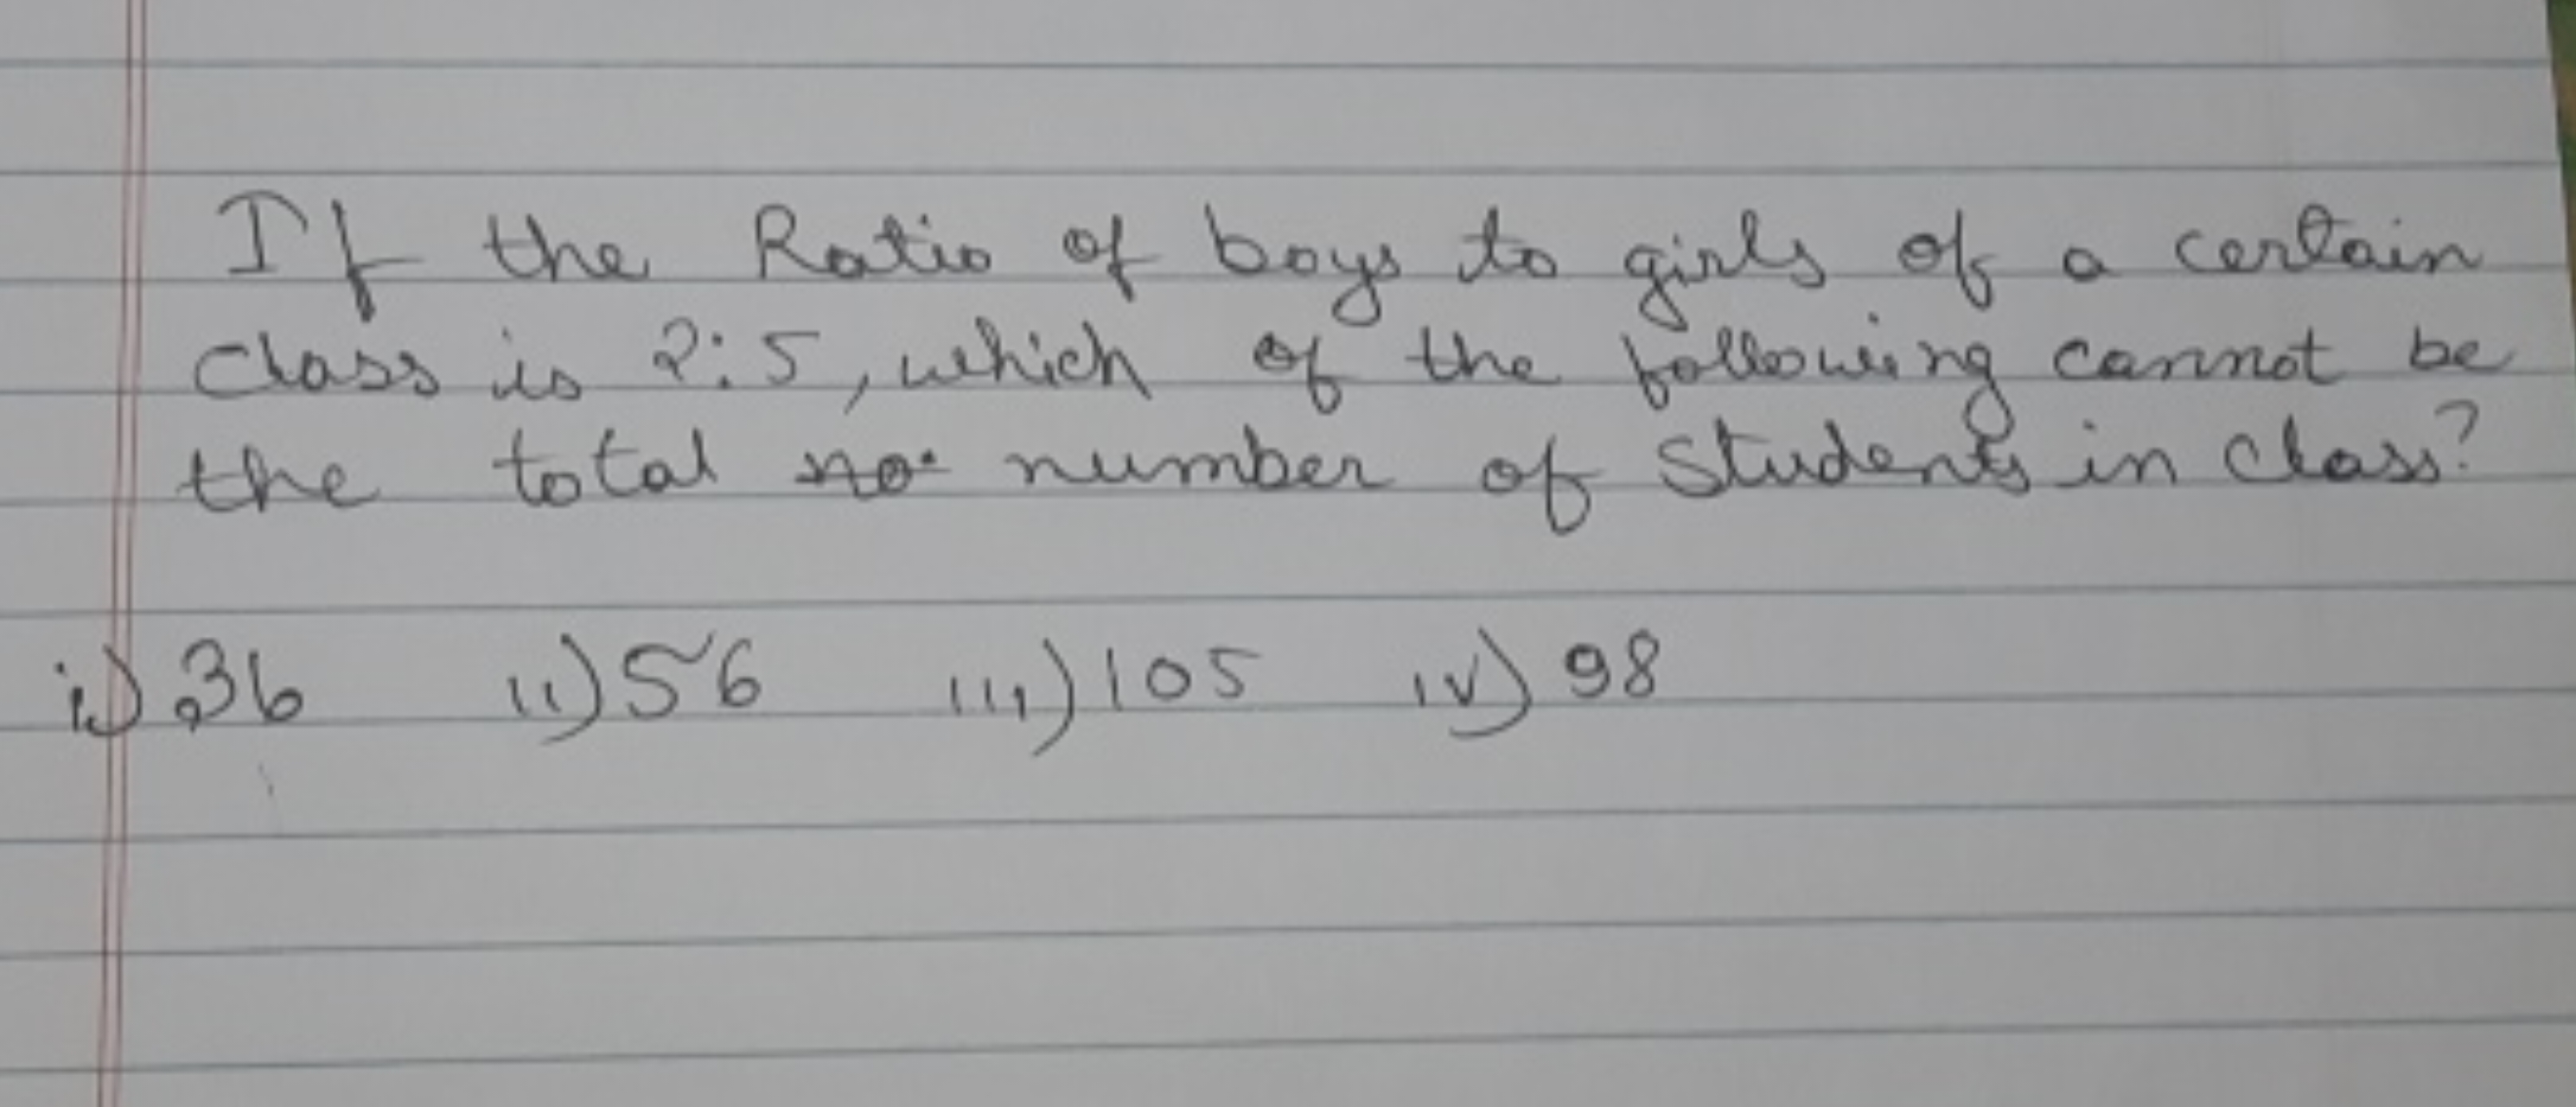 If the Ratio of boys to girls of a certain
class is 2:5, which of the following cannot be
the total no. number of students in class?
i) 36 ii) 56 iii) 105 iv) 98